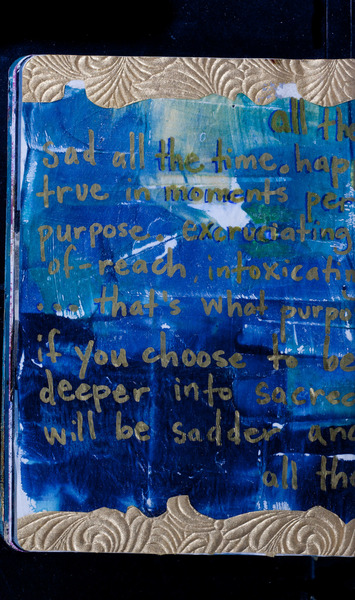 all th
Sad all the time. hap
true in moments per
purpose. excruciating
of-reach, intoxicatin
... that's what purpo
if you choose to be
deeper into sacred
will be sadder and
all the